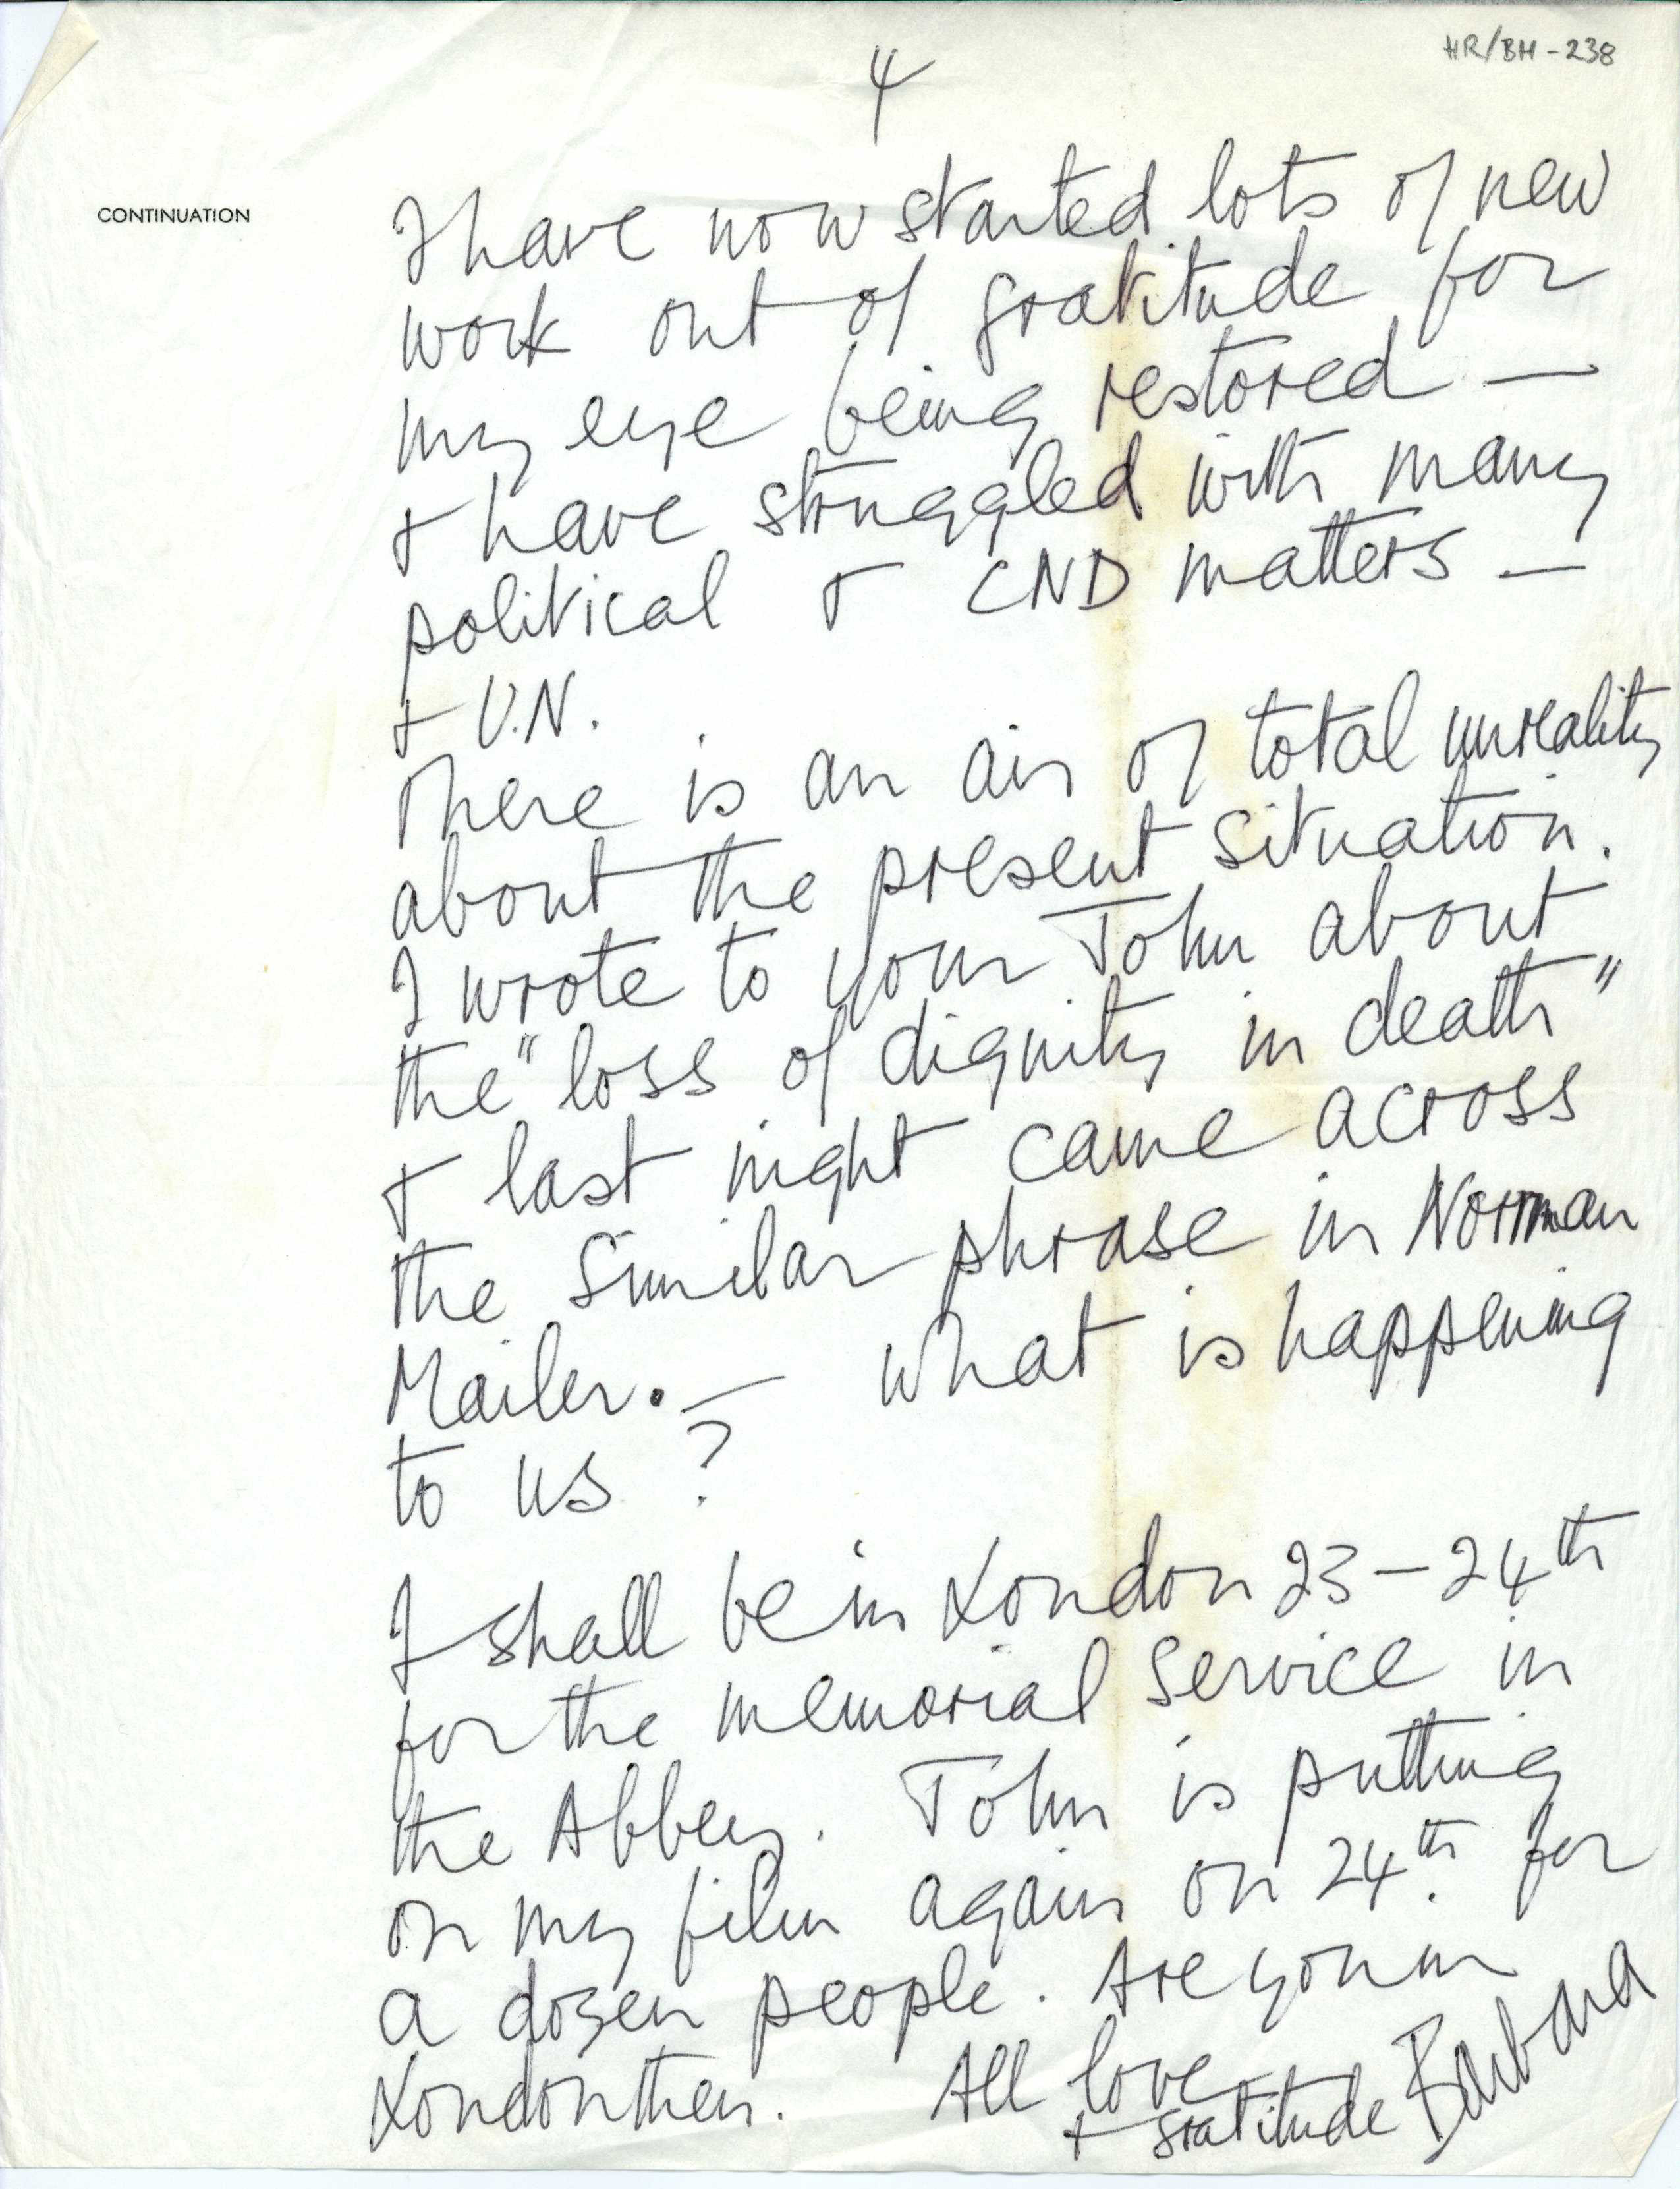 HR/BH-238
4
CONTINUATION
I have now started lots of new
work out of gratitude for
my eye being restored —
+ have struggled with many
political + CND matters —
+ U.N.
There is an air of total unreality
about the present situation.
I wrote to your John about
the "loss of dignity in death"
+ last night came across
the similar phrase in Norman
Mailer. — What is happening
to us ?
I shall be in London 23 – 24th
for the memorial service in
the Abbey. John is putting
on my film again on 24th. for
a dozen people. Are you in
London then. All love
+ gratitude Barbara